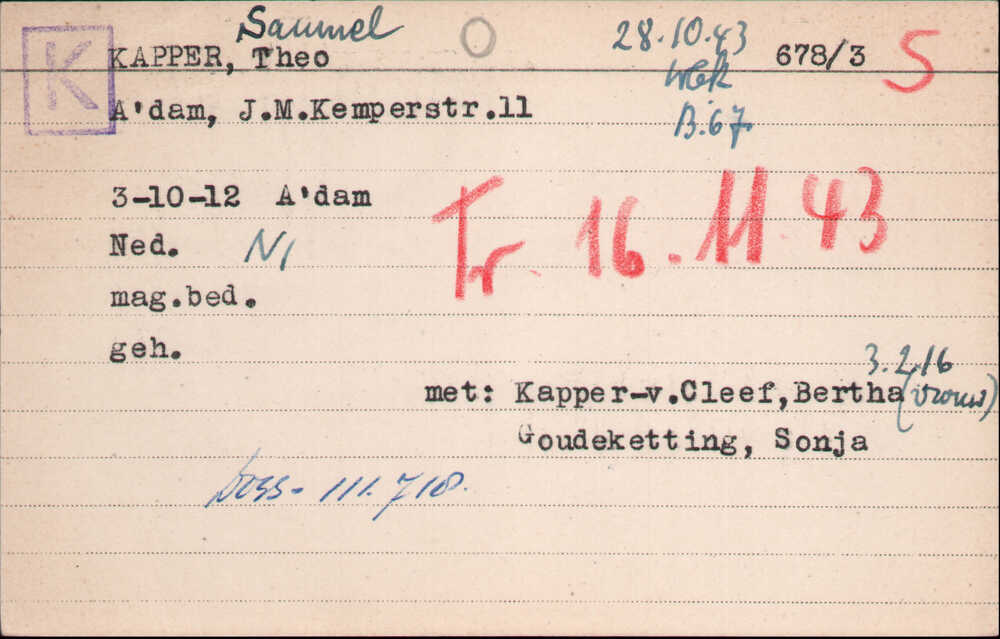 Samuel
K
KAPPER, Theo
28.10.43
678/3
S
WBK
B.67
A'dam, J.M.Kemperstr.11
3-10-12 A'dam
Tr. 16.11 43
Ned. NI
mag.bed.
geh.
3.2.16
met: Kapper-v.Cleef,Bertha (vrouw)
Goudeketting, Sonja
Doss- 111.718.